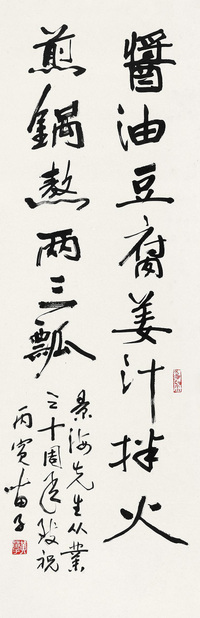 醬油豆腐姜汁拌火
煎鍋熬兩三瓢
景海先生从業
三十周年致祝
丙寅苗子